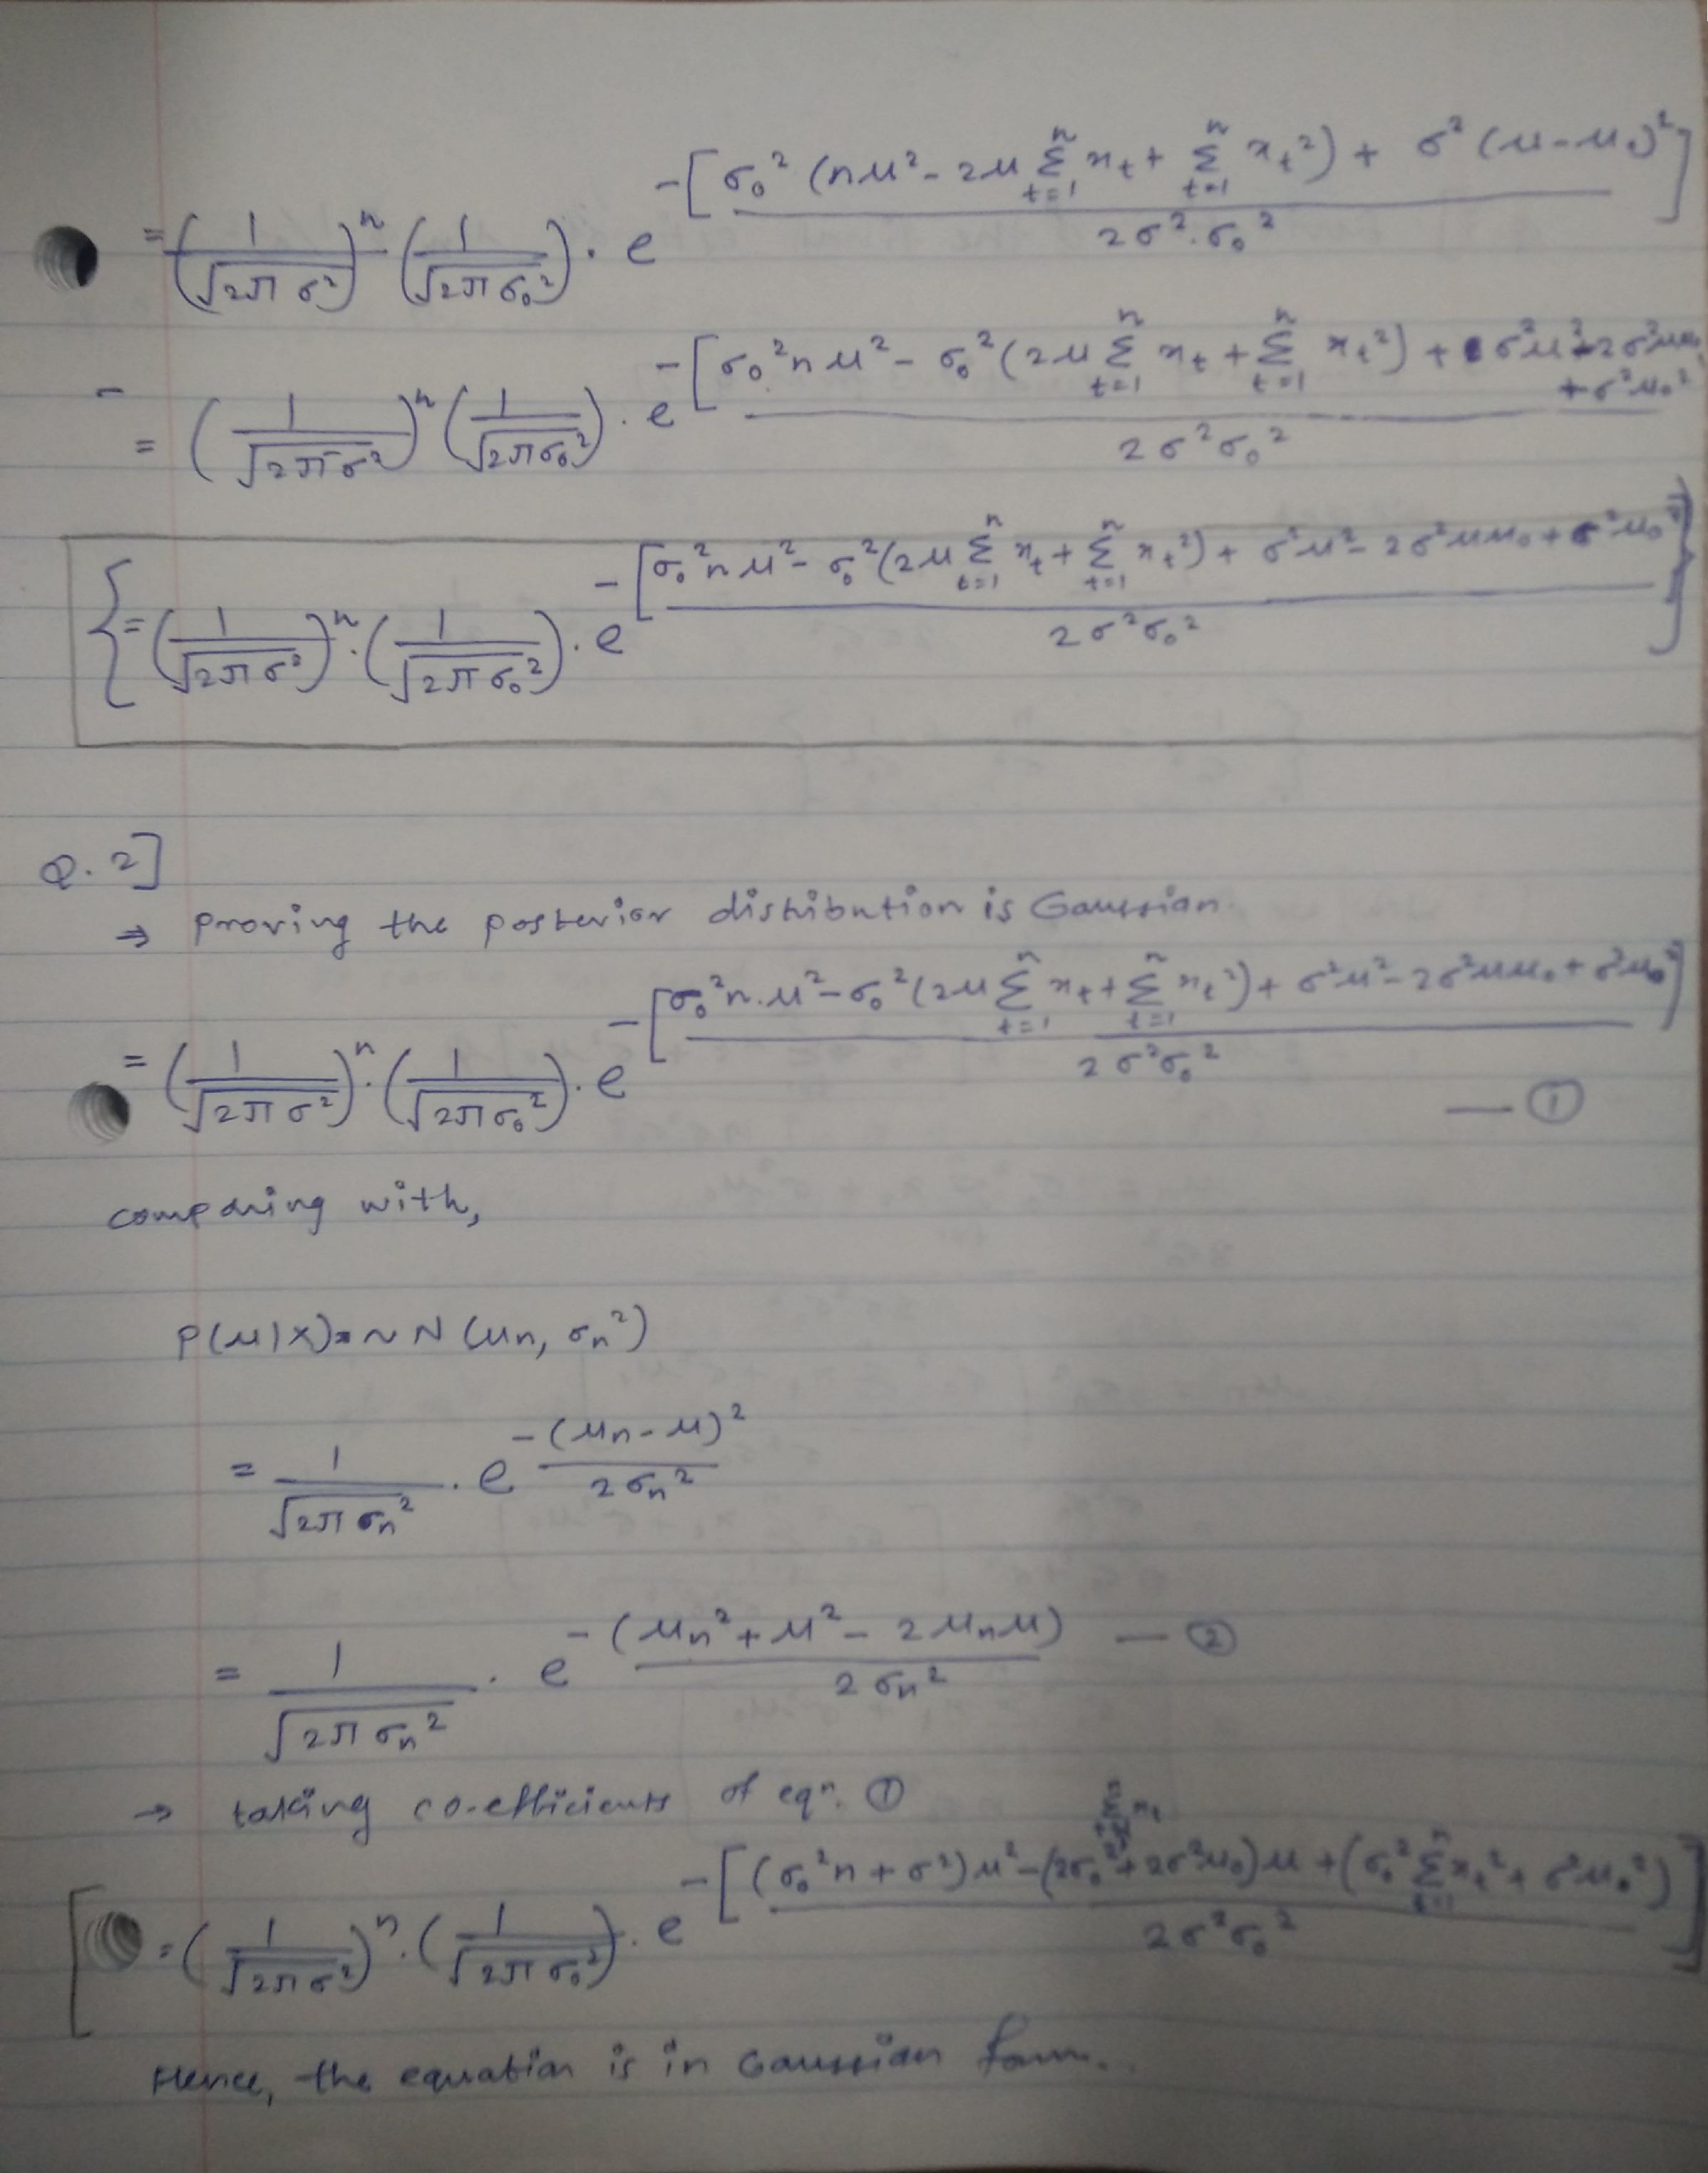 = (1/√2πσ²)ⁿ (1/√2πσ₀²) . e^-[σ₀² (nμ² - 2μ Σₜ₌₁ⁿ xₜ + Σₜ₌₁ⁿ xₜ²) + σ² (μ-μ₀)²] / 2σ².σ₀²
= (1/√2πσ²)ⁿ (1/√2πσ₀²) . e^-[σ₀²nμ² - σ₀² (2μ Σₜ₌₁ⁿ xₜ + Σₜ₌₁ⁿ xₜ²) + σ²μ² - 2σ²μμ₀ + σ²μ₀²] / 2σ²σ₀²
{= (1/√2πσ²)ⁿ . (1/√2πσ₀²) . e^-[σ₀²nμ² - σ₀² (2μ Σₜ₌₁ⁿ xₜ + Σₜ₌₁ⁿ xₜ²) + σ²μ² - 2σ²μμ₀ + σ²μ₀²] / 2σ²σ₀²}
Q. 2]
⇒ proving the posterior distribution is Gaussian.
= (1/√2πσ²)ⁿ . (1/√2πσ₀²) . e^-[σ₀²n.μ² - σ₀² (2μ Σₜ₌₁ⁿ xₜ + Σₜ₌₁ⁿ xₜ²) + σ²μ² - 2σ²μμ₀ + σ²μ₀²] / 2σ²σ₀² — ①
comparing with,
P(μ|x) = ~ N (μn, σn²)
= 1/√2πσn² . e^-(μn - μ)² / 2σn²
= 1/√2πσn² . e^-(μn² + μ² - 2μnμ) / 2σn² — ②
→ taking co-efficients of eqⁿ. ①
[= (1/√2πσ²)ⁿ . (1/√2πσ₀²) . e^-[(σ₀²n + σ²)μ² - (2σ₀² Σₜ₌₁ⁿ xₜ + 2σ²μ₀)μ + (σ₀² Σₜ₌₁ⁿ xₜ² + σ²μ₀²)] / 2σ²σ₀²]
Hence, the equation is in Gaussian form..